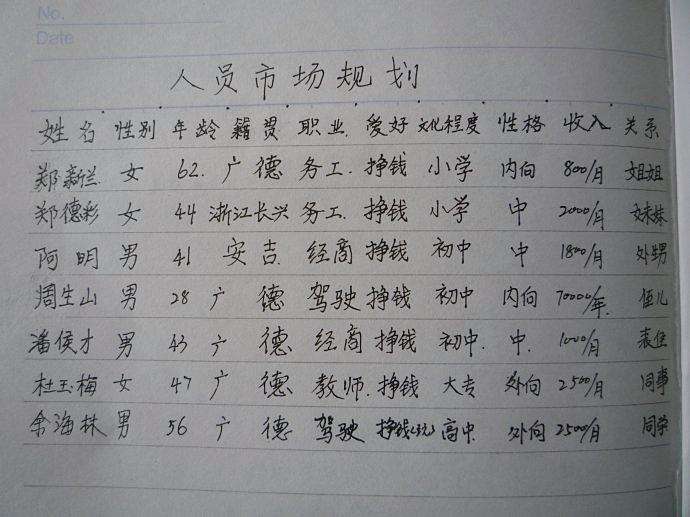 No.
Date
人员市场规划
姓名 性别 年龄 籍贯 职业 爱好 文化程度 性格 收入 关系
郑新兰 女 62. 广德 务工. 挣钱 小学 内向 800/月 姐姐
郑德彩 女 44 浙江长兴 务工. 挣钱 小学 中 2000/月 妹妹
阿明 男 41 安吉 经商 挣钱 初中 中 1800/月 外甥
周生山 男 28 广德 驾驶 挣钱 初中 内向 70000/年. 侄儿
潘侯才 男 43 广德 经商 挣钱 初中. 中. 1000/月 表侄
杜玉梅 女 47 广德 教师. 挣钱 大专 外向 2500/月 同事
余海林 男 56 广德 驾驶 挣钱 高中 外向 2500/月 同学